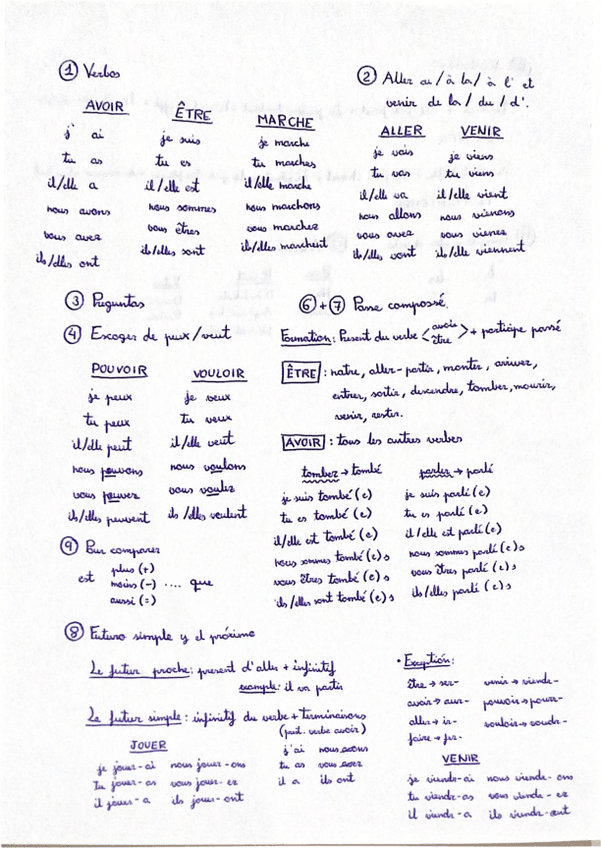 ① Verbos
AVOIR
j' ai
tu as
il/elle a
nous avons
vous avez
ils/elles ont
ÊTRE
je suis
tu es
il/elle est
nous sommes
vous êtres
ils/elles sont
MARCHE
je marche
tu marches
il/elle marche
nous marchons
vous marchez
ils/elles marchent
② Aller au / à la / à l' et
venir de la / du / d'.
ALLER
je vais
tu vas
il/elle va
nous allons
vous avez
ils/elle vont
VENIR
je viens
tu viens
il/elle vient
nous vienons
vous vienez
ils/elle viennent
③ Preguntas
④ Escoger de peux/veut
POUVOIR
je peux
tu peux
il/elle peut
nous pouvons
vous pouvez
ils/elles peuvent
VOULOIR
je veux
tu veux
il/elle veut
nous voulons
vous voulez
ils/elles veulent
⑨ Pour comparer
est
plus (+)
moins (-) .... que
aussi (=)
⑥ + ⑦ Passe compossé.
Formation: Present du verbe < avoir être > + participe passé
ÊTRE : naitre, aller - partir, monter, arriver,
entrer, sortir, descendre, tomber, mourir,
venir, rester.
AVOIR : tous les autres verbes
tomber → tombé
je suis tombé(e)
tu es tombé(e)
il/elle est tombé(e)
nous sommes tombé(e)s
vous êtres tombé(e)s
ils/elles sont tombé(e)s
parler → parlé
je suis parlé(e)
tu es parlé(e)
il/elle est parlé(e)
nous sommes parlé(e)s
vous êtres parlé(e)s
ils/elles parlé(e)s
⑧ Futuro simple y el próximo
Le futur proche: present d'aller + infinitif
example: il va partir
Le futur simple: infinitif du verbe + terminaisons
(prst. verbe avoir)
JOUER
je jouer-ai nous jouer-ons
tu jouer-as vous jouer-ez
il jouer-a ils jouer-ont
j'ai nous avons
tu as vous avez
il a ils ont
• Exception:
être → ser- venir → viendr-
avoir → aur- pouvoir → pourr-
aller → ir- vouloir → voudr-
faire → fer-
VENIR
je viendr-ai nous viendr-ons
tu viendr-as vous viendr-ez
il viendr-a ils viendr-ont